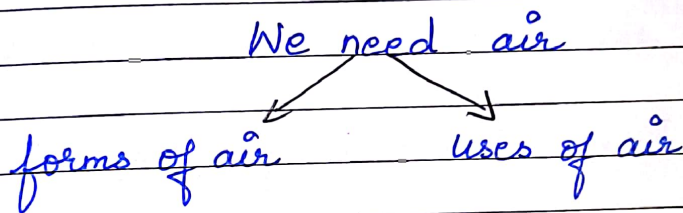 We need air
forms of air uses of air